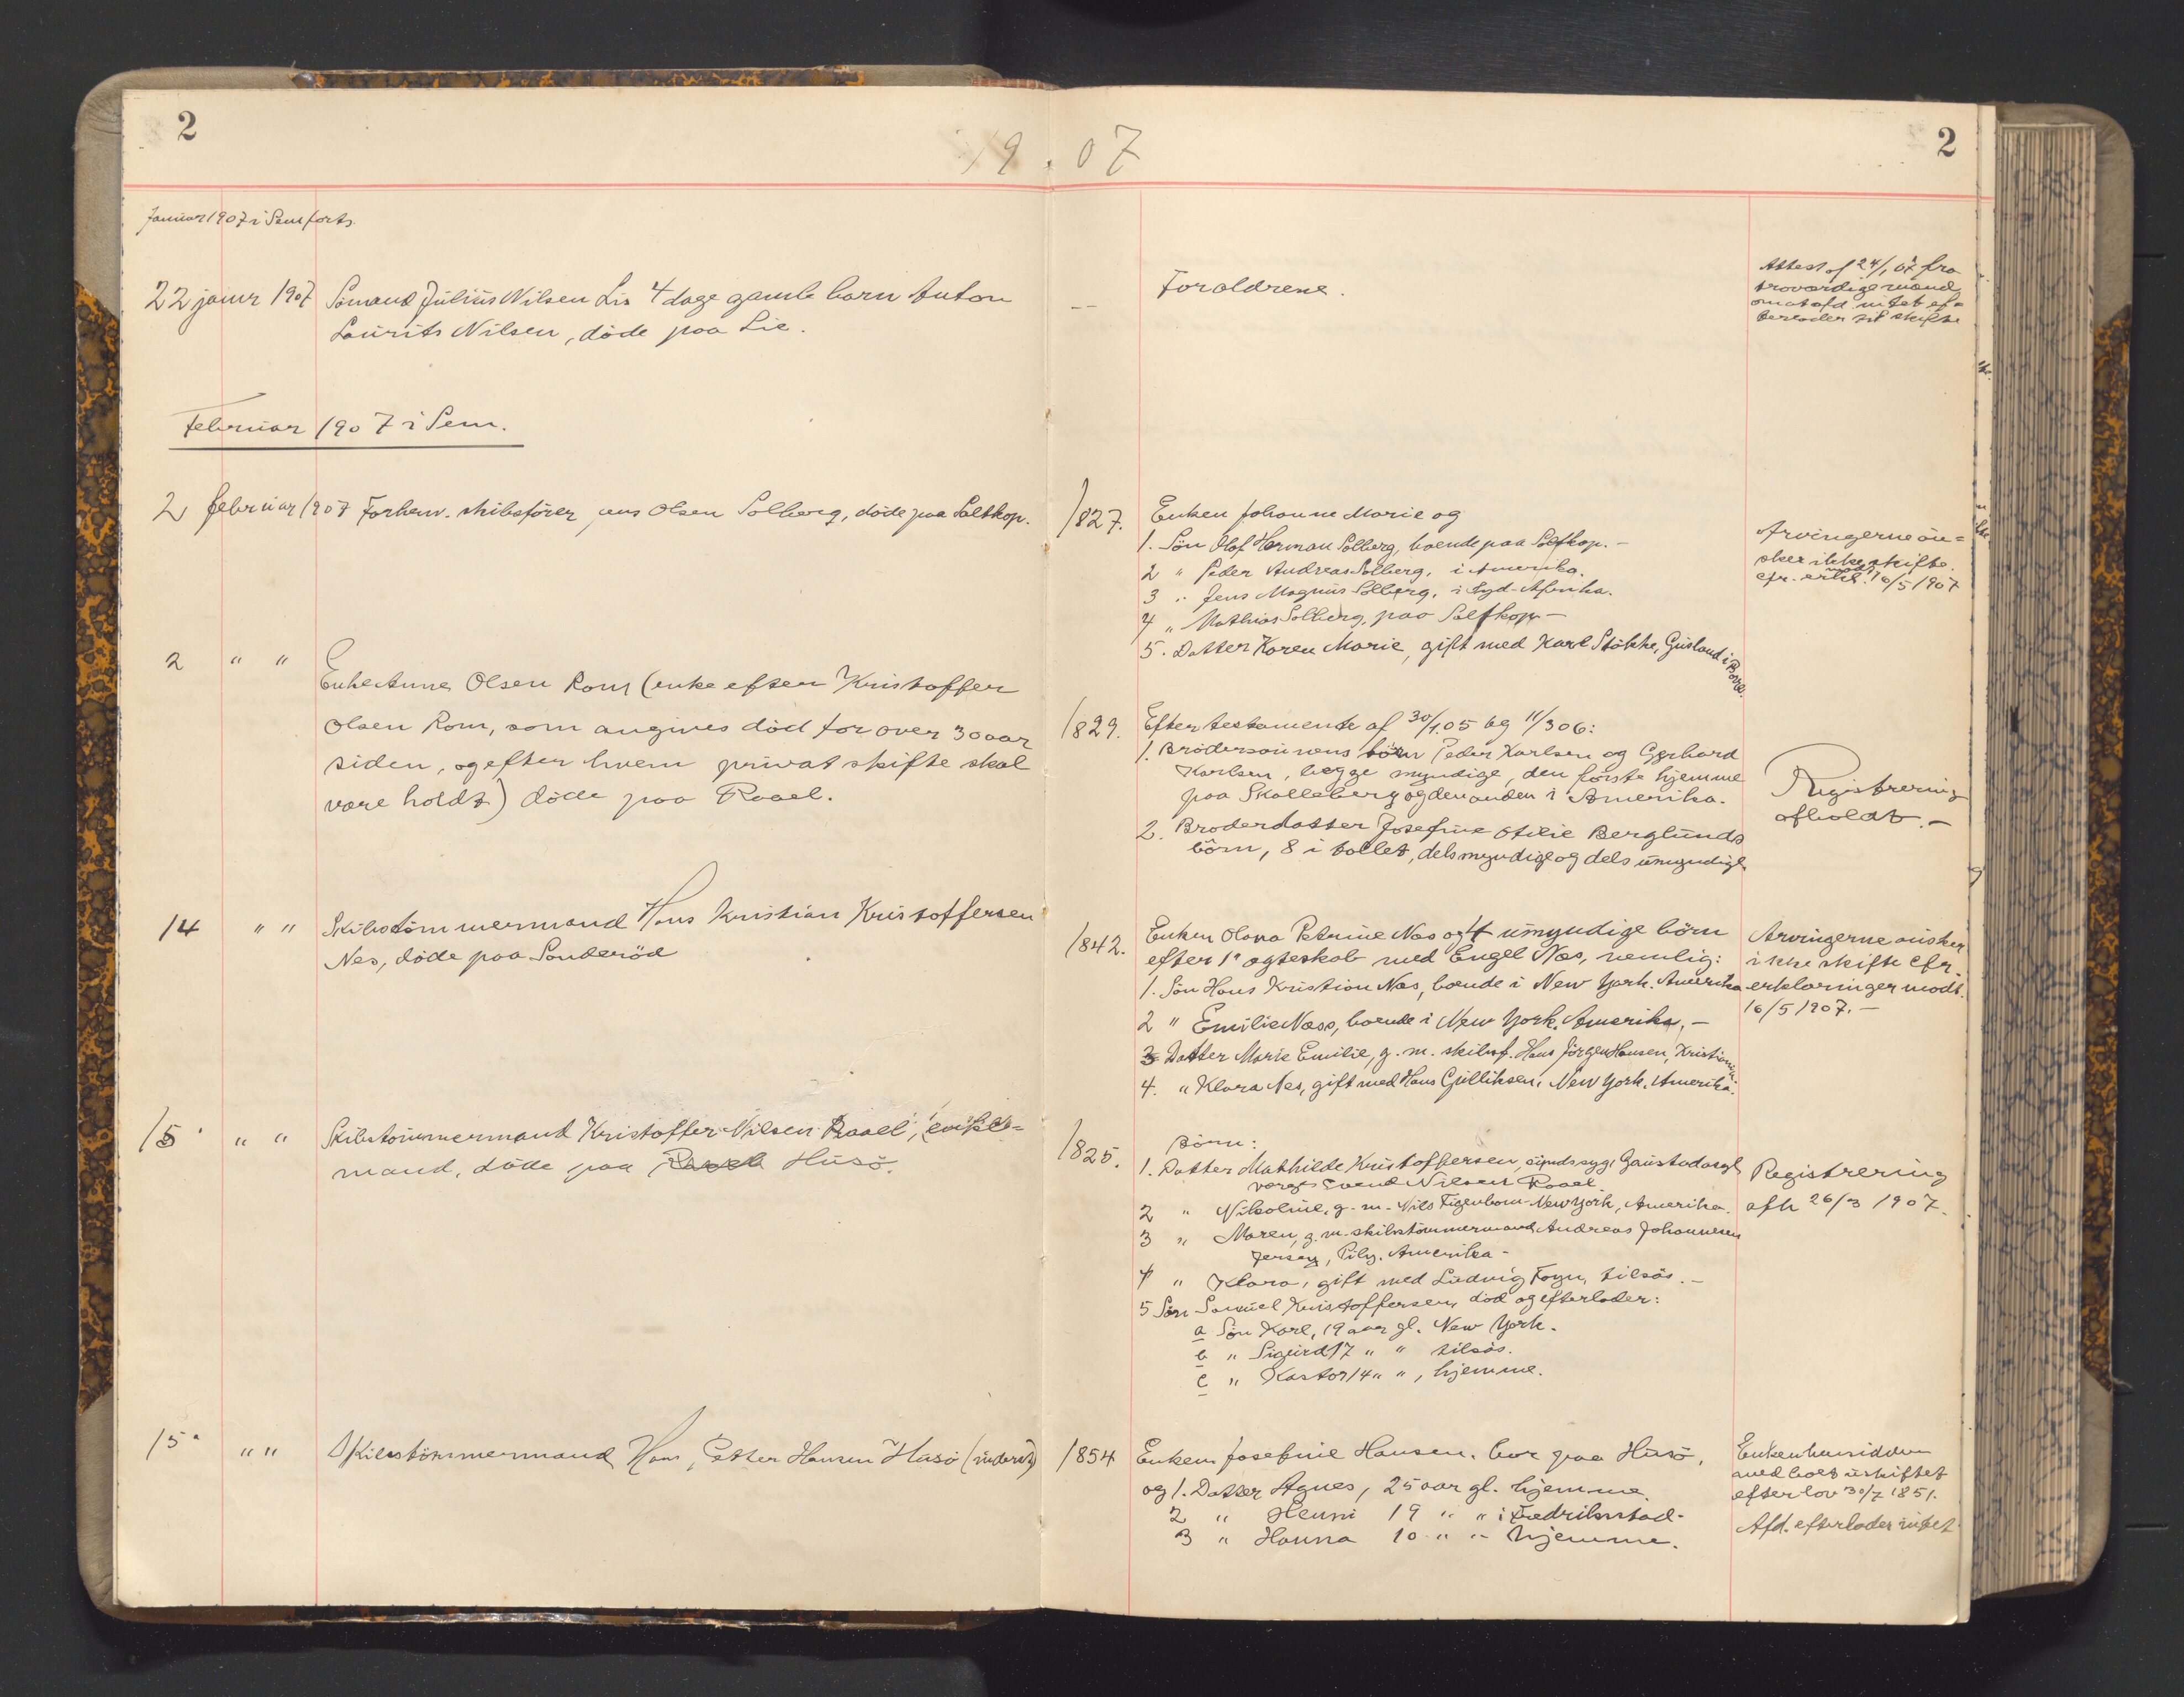 2
19.07
2
Januar 1907 i Sem forts.
22 januar 1907 Sömand Julius Nilsen Lie 4 dage gamle barn Anton
Laurits Nilsen, döde paa Lie.
—
Forældrene.
Attest af 24/1 07 fra
troværdige mænd
om at afd. intet ef=
terlader til skifte
Februar 1907 i Sem.
2 februar 1907 Forhenv. skibsförer Jens Olsen Solberg, döde paa Saltkop.
1827.
Enken Johanne Marie og
1. Sön Olaf Herman Solberg, boende paa Saltkop. —
2 " Peder Andreas Solberg, i Amerika.
3 " Jens Magnus Solberg, i Syd-Afrika.
4 " Mathias Solberg, paa Saltkop —
5. Datter Karen Marie, gift med Karl Stökke, Gusland i Borre.
Arvingerne ön=
sker ikke skifte.
cfr. erkl. modt. 16/5 1907
2 " "
Enke Anne Olsen Rom (enke efter Kristoffer
Olsen Rom, som angives död for over 30 aar
siden, og efter hvem privat skifte skal
være holdt) döde paa Raael.
1829.
Efter testamente af 30/1 05 og 11/3 06:
1. Brödersönnens börn Peder Karlsen og Gerhard
Karlsen, begge myndige, den förste hjemme
paa Skalleberg og den anden i Amerika.
2. Broderdatter Josefine Otilie Berglunds
börn, 8 i tallet, dels myndige og dels umyndige
Registrering
afholdt. —
14 " " Skibstömmermand Hans Kristian Kristoffersen
Nes, döde paa Sönderöd
1842.
Enken Olava Petrine Næs og 4 umyndige börn
efter 1ste ægteskab med Engel Næs, nemlig:
1. Sön Hans Kristian Næs, boende i New York. Amerika
2 " Emilie Næss, boende i New York. Amerika. —
3 Datter Marie Emilie, g. m. skibsf. Hans Jörgen Hansen, Kristiania
4. " Klara Nes, gift med Hans Gulliksen, New York. Amerika.
Arvingerne önsker
ikke skifte cfr.
erklæringer modt.
16/5 1907. —
15 " " Skibstömmermand Kristoffer Nilsen Raael, enke=
mand, döde paa Raael Husö.
1825.
Börn:
1. Datter Mathilde Kristoffersen, sindssyg, Gaustad asyl
værge Svend Nilsen Raael
2 " Nikoline, g. m. Nils Figenbom New York, Amerika.
3 " Maren, g. m. skibstömmermand Andreas Johannesen
Jersey, City. Amerika —
4 " Klara, gift med Ludvig Foyn, tilsös. —
5 Sön Samuel Kristoffersen, död og efterlader:
a Sön Karl, 19 aar gl. New York.
b " Sigurd 17 " " tilsös.
c " Kastor 14 " ", hjemme.
Registrering
afh 26/3 1907.
15 " " Skibstömmermand Hans Petter Hansen Husö
1854
Enken Josefine Hansen. bor paa Husö,
og 1. Datter Agnes, 25 aar gl. hjemme.
2 " Henni 19 " " i Fredrikstad.
3 " Hanna 10 " " hjemme.
Enken hensidder
med boet uskiftet
efter lov 30/7 1851.
Afd. efterlader intet.